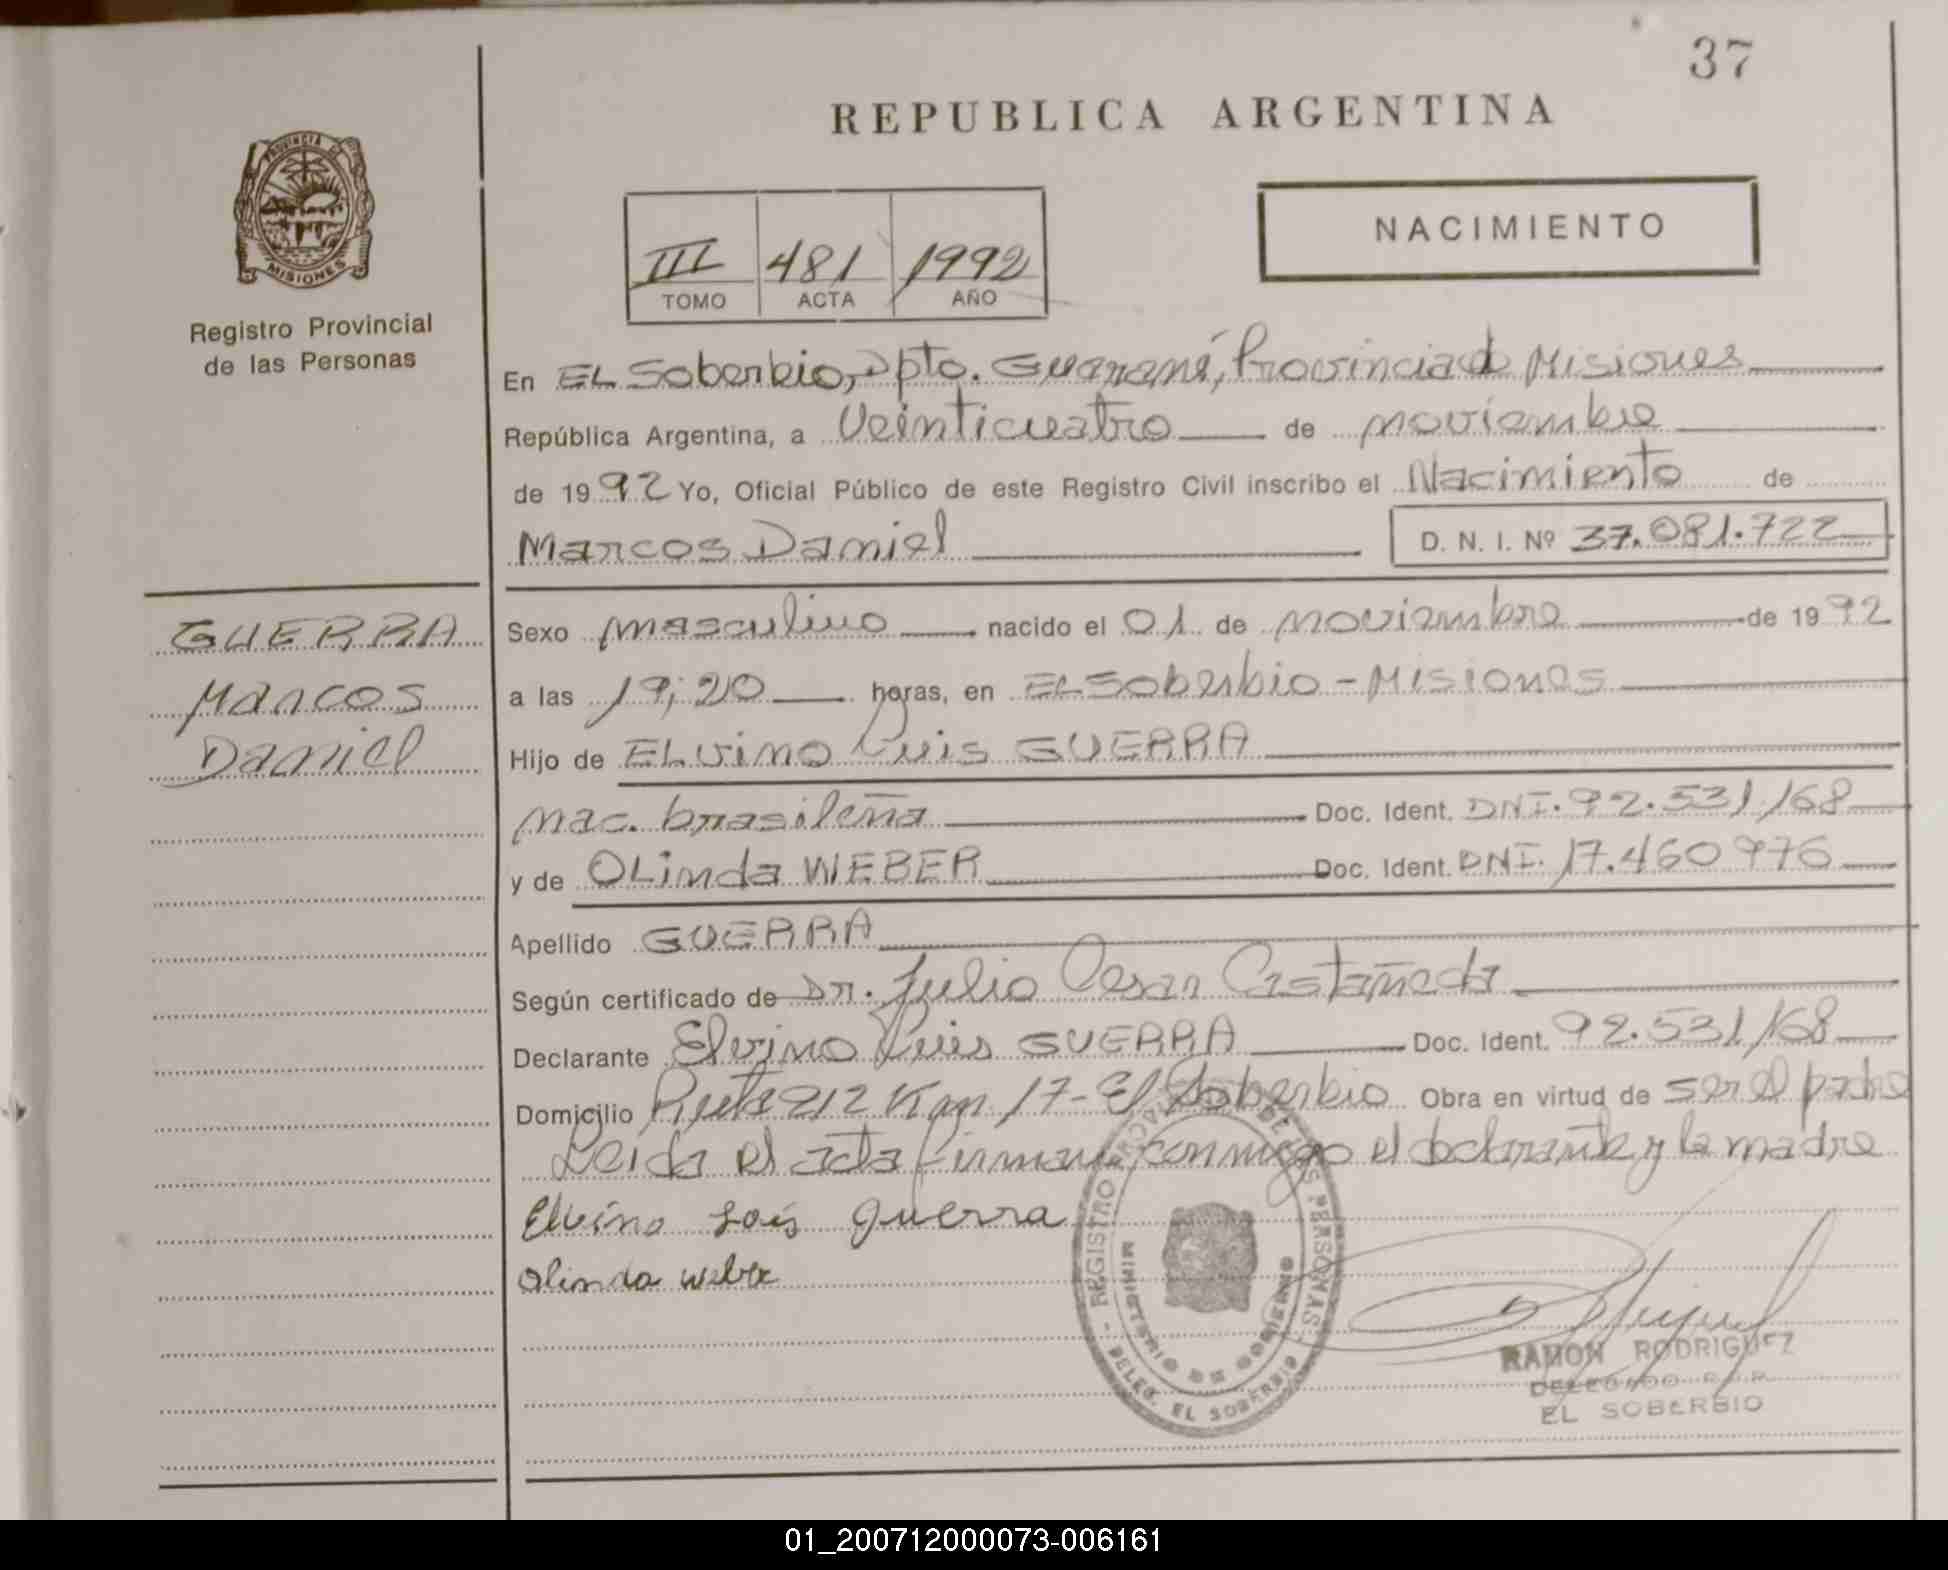 37
REPUBLICA ARGENTINA
PROVINCIA DE
MISIONES
Registro Provincial
de las Personas
NACIMIENTO
III 481 1992
TOMO ACTA AÑO
En EL Soberbio, Dpto. Guaraní, Provincia de Misiones
República Argentina, a Veinticuatro de noviembre
de 1992 Yo, Oficial Público de este Registro Civil inscribo el Nacimiento de
Marcos Daniel D. N. I. Nº 37.081.722
GUERRA
Marcos
Daniel
Sexo masculino nacido el 01 de noviembre de 1992
a las 19,20 horas, en EL Soberbio - Misiones
Hijo de ELvino Luis GUERRA
nac. brasileña Doc. Ident. DNI. 92.531.168
y de OLinda WEBER Doc. Ident. DNI. 17.460976
Apellido GUERRA
Según certificado de Dr. Julio Cesar Castañeda
Declarante Elvino Luis GUERRA Doc. Ident. 92.531.168
Domicilio Ruta 212 Km 17 - El Soberbio Obra en virtud de ser el padre
Leida el acta firman conmigo el declarante y la madre
Elvino Luis guerra
Olinda weber
REGISTRO PROVINCIAL DE LAS PERSONAS
MINISTERIO DE GOBIERNO
- DELEG. EL SOBERBIO -
RAMON RODRIGUEZ
DELEGADO R.P.P.
EL SOBERBIO
01_200712000073-006161